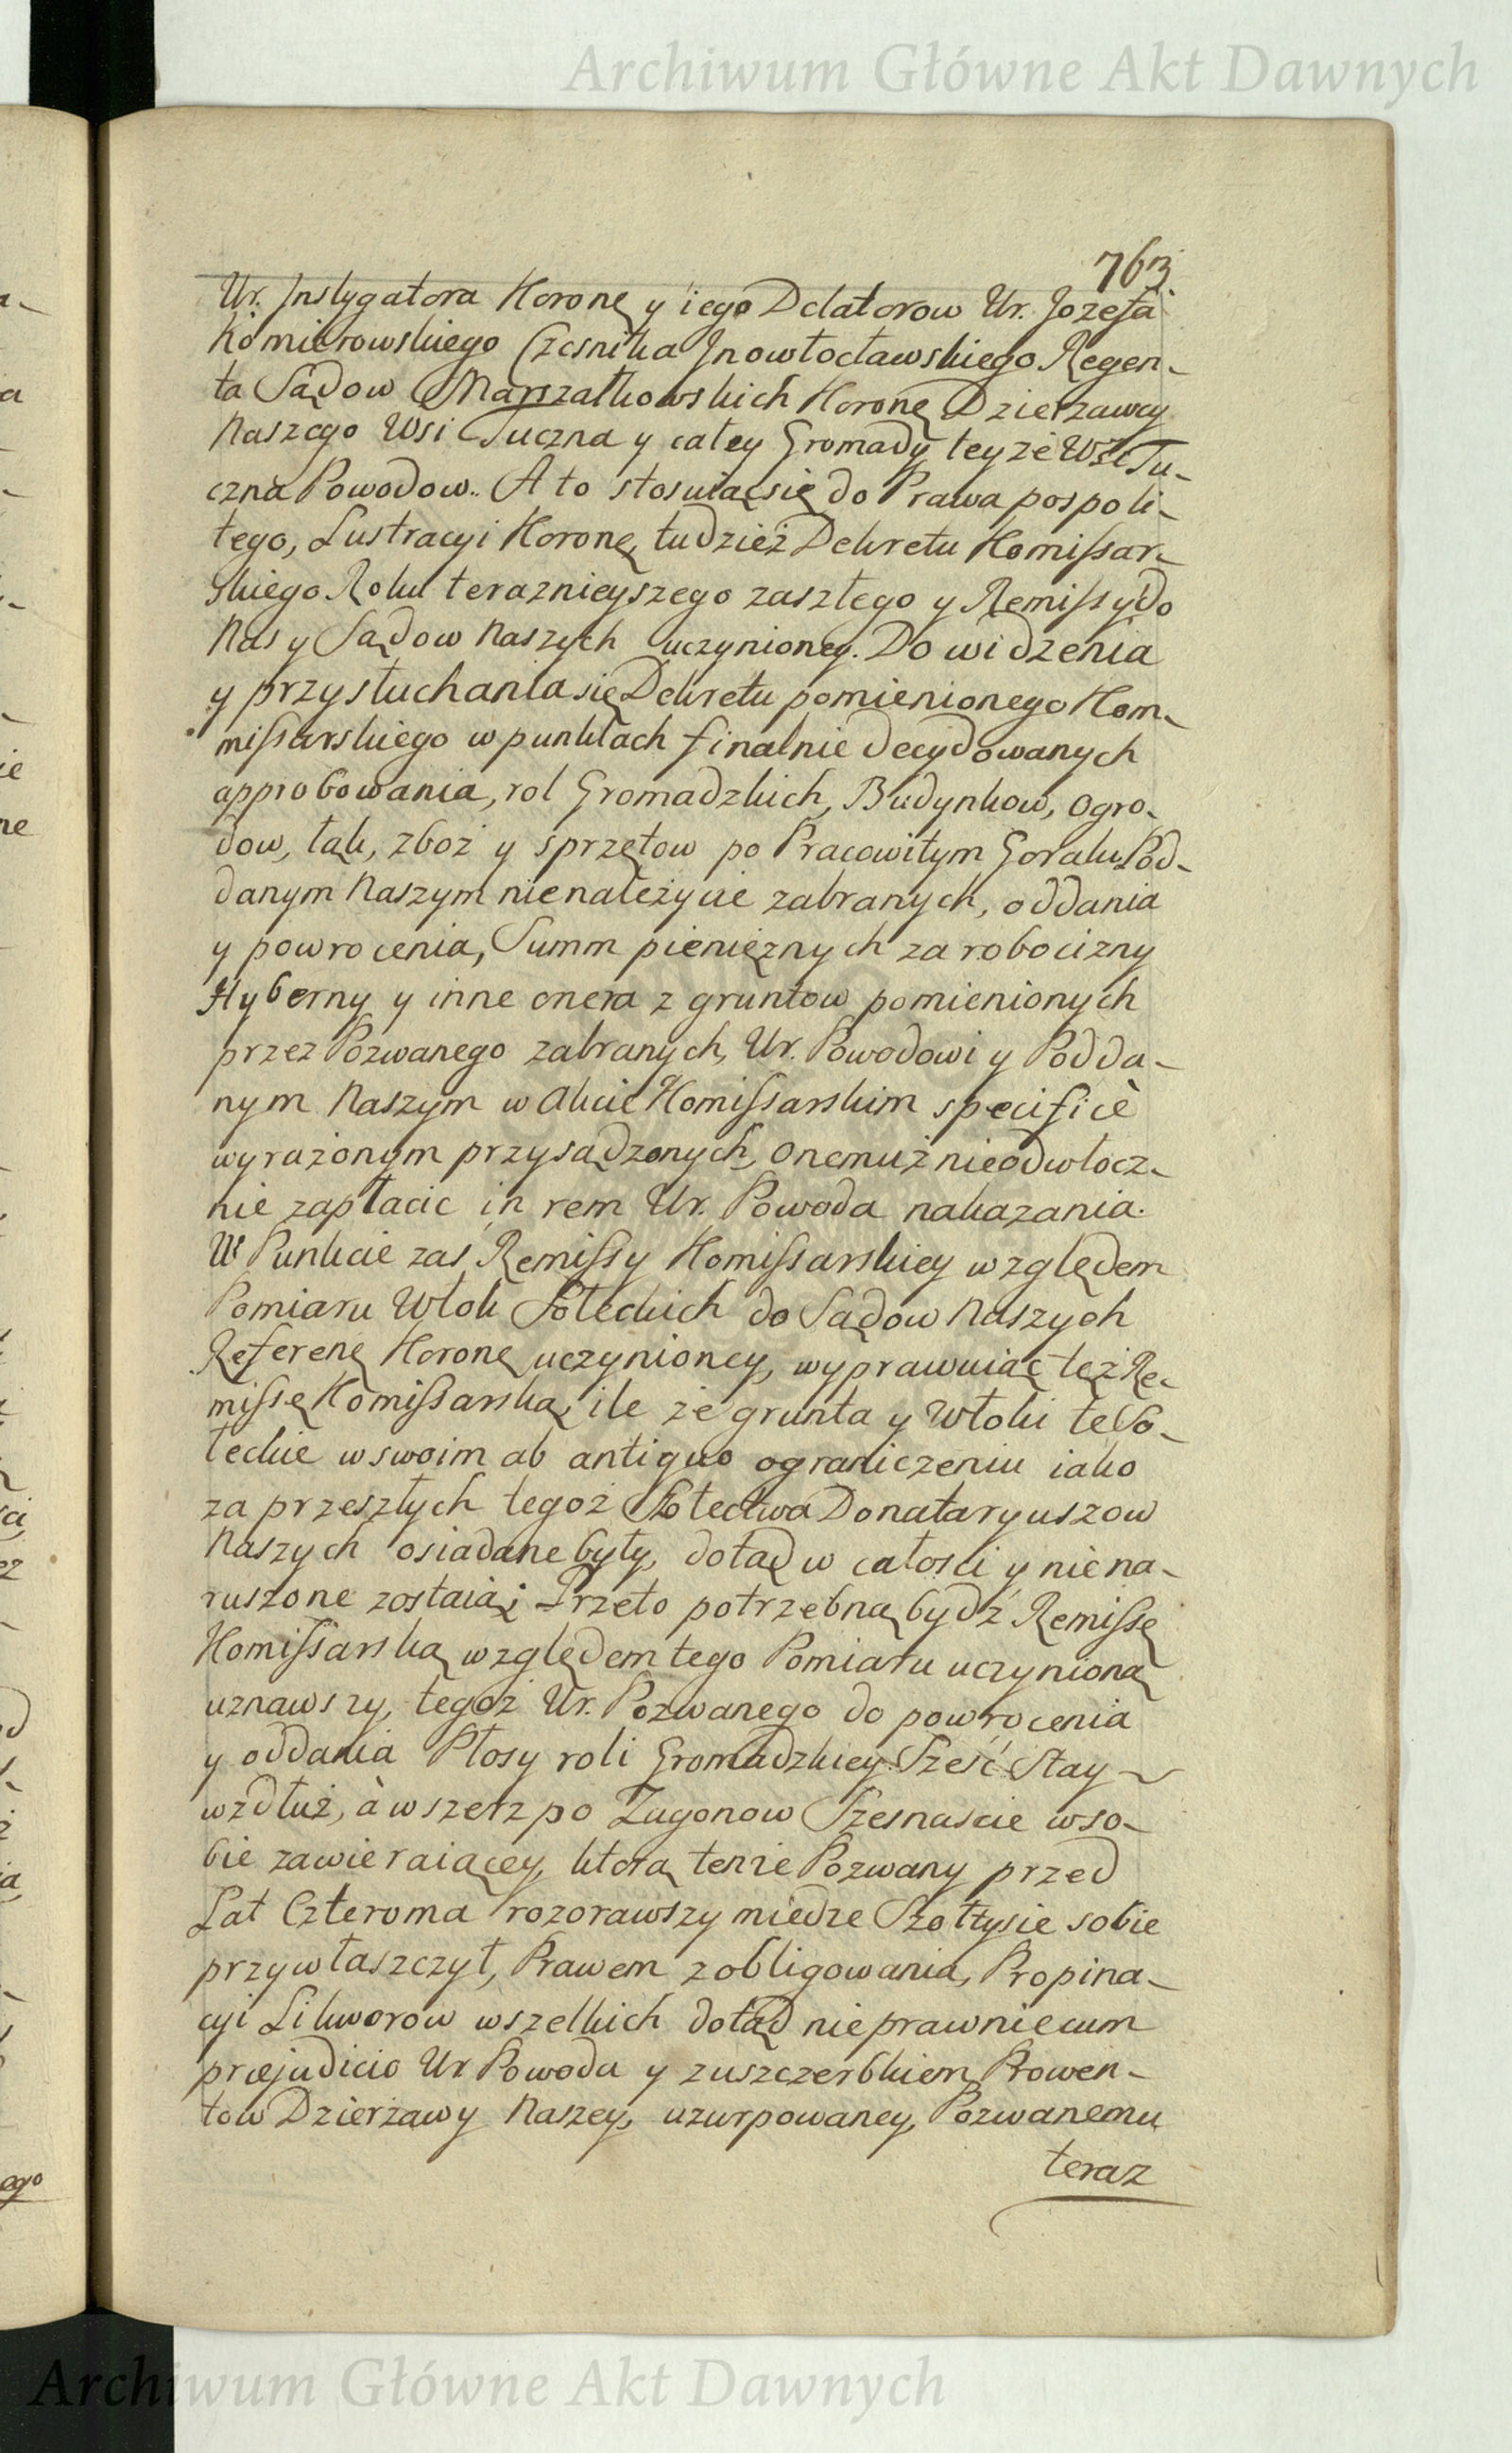 Archiwum Główne Akt Dawnych
763.
Ur. Instygatora Koronę y iego Delatorow Ur. Jozefa
Komierowskiego Czesnika Jnowłocławskiego Regen-
ta Sądow Marszałkowskich Koronę Dzierzawcy
Naszego Wsi Tuczna y całey Gromady teyze Wsi Tu-
czna Powodow. A to stosuiąc się do Prawa pospoli-
tego, Lustracyi Koronę, tudzież Dekretu Komissar-
skiego Roku teraznieyszego zaszłego y Remissy do
Nas y Sądow Naszych uczynioney. Do widzenia
y przysłuchania się Dekretu pomienionego Kom-
missarskiego w punktach finalnie decydowanych
approbowania, rol Gromadzkich, Budynkow, Ogro-
dow, łąk, zboż y sprzętow po Pracowitym Goralu Pod-
danym Naszym nienależycie zabranych, oddania
y powrocenia, Summ pienięznych za robocizny
Hyberny y inne onera z gruntow pomienionych
przez Pozwanego zabranych, Ur. Powodowi y Podda-
nym Naszym w Akcie Komissarskim specificè
wyrażonym przysądzonych, onemuż nieodwłocz-
nie zapłacic in rem Ur. Powoda nakazania.
W Punkcie zas Remissy Komissarskiey względem
Pomiaru Włok Sołeckich do Sądow Naszych
Referenę Koronę uczynioney, wyprawuiąc też Re-
missę Komissarską, ile że grunta y Włoki te So-
łeckie w swoim ab antiquo ograniczeniu iako
za przeszłych tegoż Sołectwa Donataryuszow
Naszych osiadane były, dotąd w całości y niena-
ruszone zostaią; Przeto potrzebną bydź Remissę
Komissarską względem tego Pomiaru uczynioną
uznawszy, tegoż Ur. Pozwanego do powrocenia
y oddania Płosy roli Gromadzkiey Sześć Stay
wzdłuż, à wszerz po Zagonow Szesnascie w so-
bie zawieraiącey, ktorą tenże Pozwany przed
Lat Czteroma rozorawszy miedze Szołtysie sobie
przywłaszczył, Prawem zobligowania, Propina-
cyi Likworow wszelkich dotąd nieprawnie cum
præjudicio Ur Powoda y zuszczerbkiem Prowen-
tow Dzierżawy Naszey, uzurpowaney, Pozwanemu
teraz
Archiwum Główne Akt Dawnych